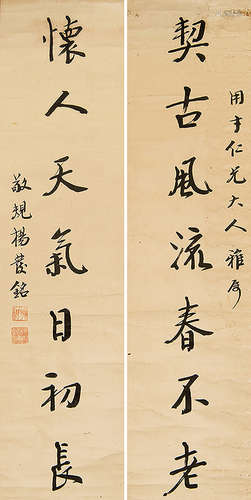 用才仁兄大人雅屬
契古風流春不老
懷人天氣日初長
敬規楊葆銘